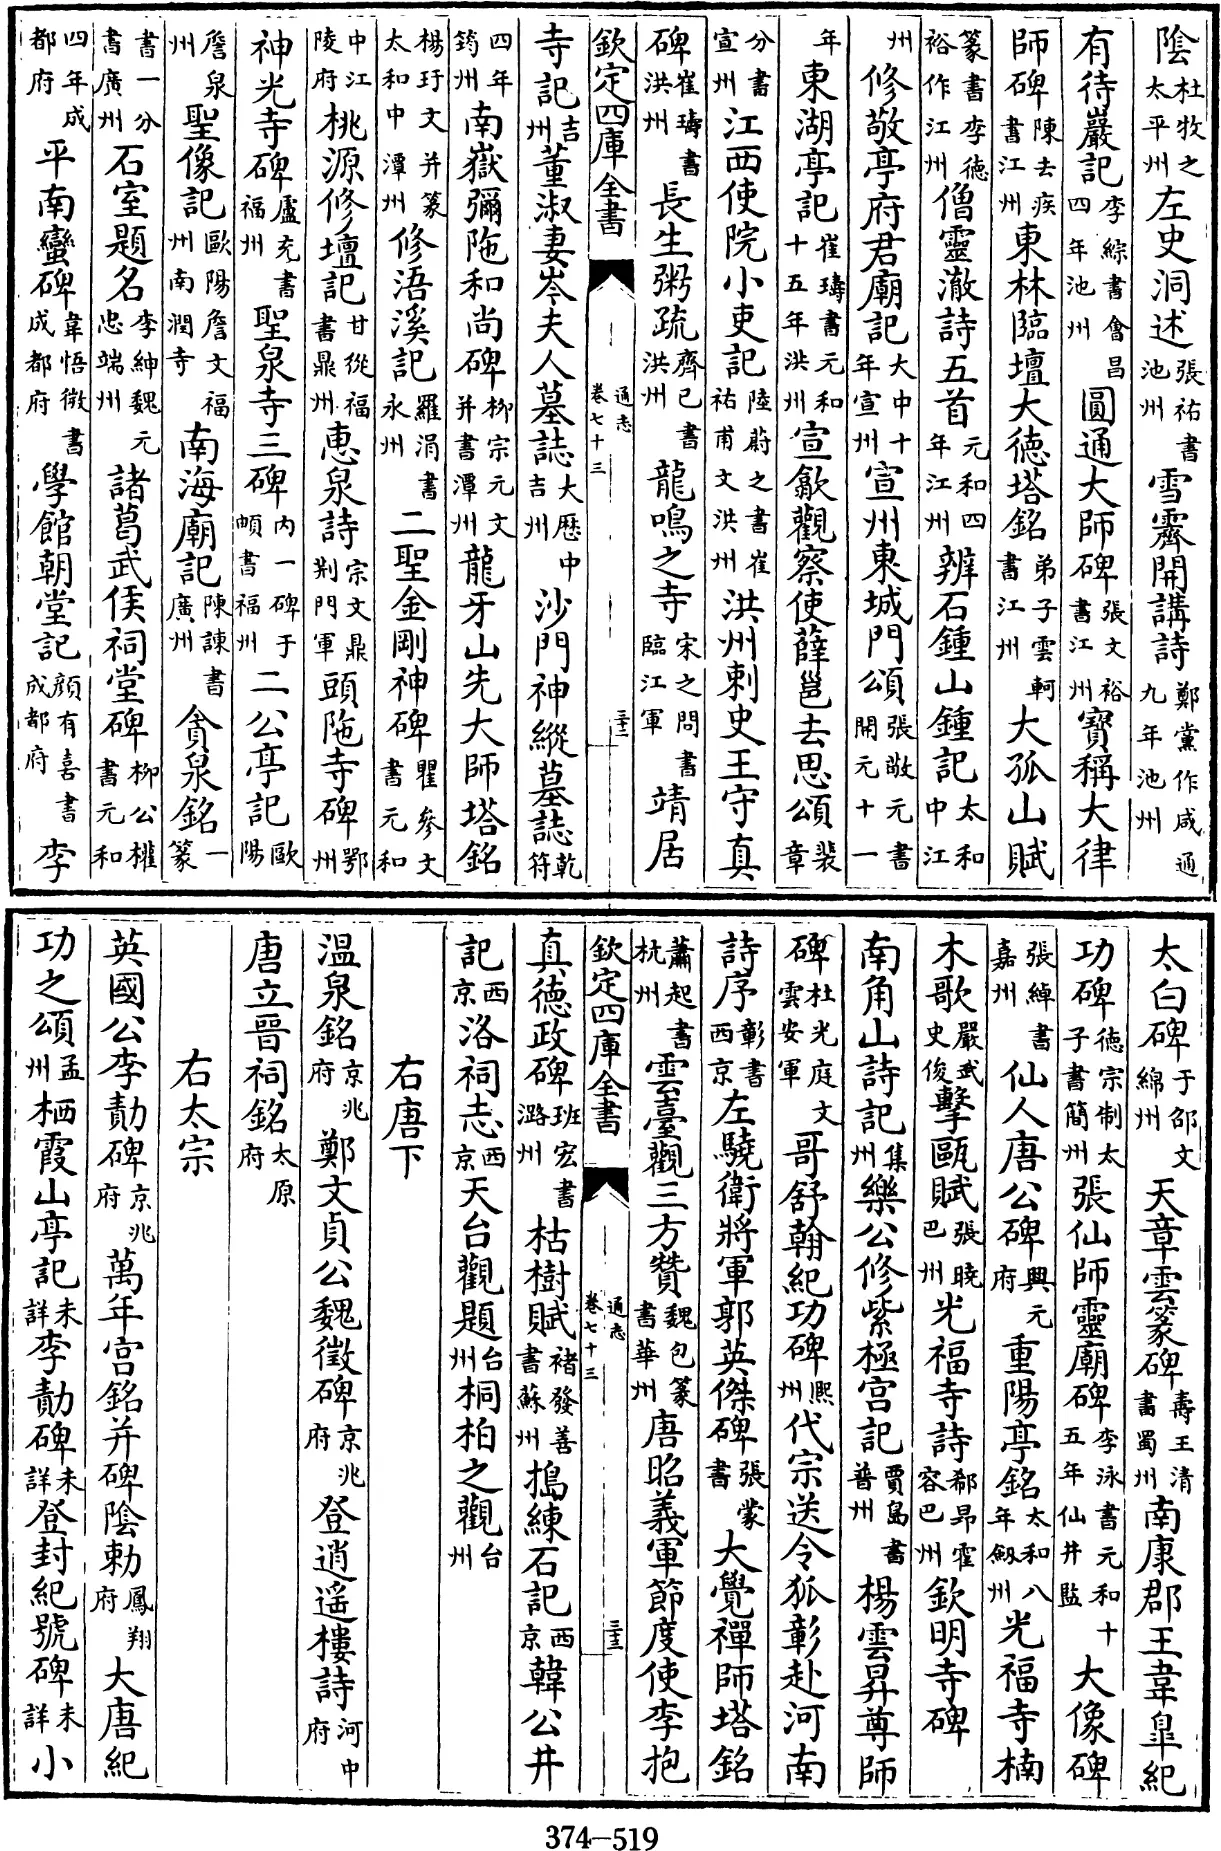 陰杜牧之太平州左史洞述張祐書池州雪霽開講詩鄭黨作咸通九年池州
有待巖記李綜書會昌四年池州圓通大師碑張文裕書江州寶稱大律
師碑陳去疾書江州東林臨壇大德塔銘弟子雲軻書江州大孤山賦
篆書李德裕作江州僧靈澈詩五首元和四年江州辨石鍾山鍾記太和中江
州修敬亭府君廟記大中十年宣州宣州東城門頌張敬元書開元十一
年東湖亭記崔璹書元和十五年洪州宣歙觀察使薛邕去思頌裴章
分書宣州江西使院小吏記陸蔚之書崔祐甫文洪州洪州刺史王守真
碑崔璹書洪州長生粥疏齊已書洪州龍鳴之寺宋之問書臨江軍靖居
欽定四庫全書 通志卷七十三 三十二
寺記吉州董淑妻岑夫人墓誌大歷中吉州沙門神縱墓誌乾符
四年筠州南嶽彌陁和尚碑柳宗元文并書潭州龍牙山先大師塔銘
楊玗文并篆太和中潭州修浯溪記羅涓書永州二聖金剛神碑瞿參文書元和
中江陵府桃源修壇記甘從福書鼎州惠泉詩宗文鼎荆門軍頭陁寺碑鄂州
神光寺碑盧充書福州聖泉寺三碑內一碑于頔書福州二公亭記歐陽
詹泉州聖像記歐陽詹文福州南澗寺南海廟記陳諫書廣州貪泉銘一篆
書一分書廣州石室題名李紳魏元忠端州諸葛武侯祠堂碑柳公權書元和
四年成都府平南蠻碑韋悟微書成都府學館朝堂記顔有喜書成都府李
太白碑于邵文綿州天章雲篆碑壽王清書蜀州南康郡王韋皐紀
功碑德宗制太子書簡州張仙師靈廟碑李泳書元和十五年仙井監大像碑
張綽書嘉州仙人唐公碑興元府重陽亭銘太和八年劔州光福寺楠
木歌嚴武史俊擊甌賦張曉巴州光福寺詩郗昂霍容巴州欽明寺碑
南角山詩記集州樂公修紫極宮記賈島書普州楊雲昇尊師
碑杜光庭文雲安軍哥舒翰紀功碑熙州代宗送令狐彰赴河南
詩序彰書西京左驍衛將軍郭英傑碑張蒙書大覺禪師塔銘
蕭起書杭州雲臺觀三方贊魏包篆書華州唐昭義軍節度使李抱
欽定四庫全書 通志卷七十三 三十三
真德政碑班宏書潞州枯樹賦褚發善書蘇州搗練石記西京韓公井
記西京洛祠志西京天台觀題台州桐柏之觀台州
右唐下
温泉銘京兆府鄭文貞公魏徵碑京兆府登逍遥樓詩河中府
唐立晉祠銘太原府
右太宗
英國公李勣碑京兆府萬年宮銘并碑陰勅鳳翔府大唐紀
功之頌孟州栖霞山亭記未詳李勣碑未詳登封紀號碑未詳小
374-519